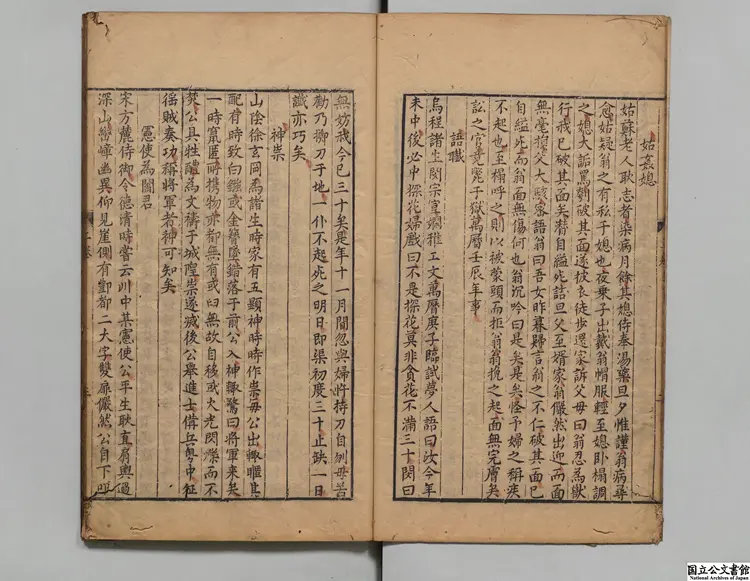 姑姦媳
姑蘇老人耿志者染病月餘其媳侍奉湯藥旦夕惟謹翁病尋
愈姑疑翁之有私于媳也夜乗子出戴翁帽服輕至媳卧榻調
之媳大詬罵剺破其面遂披衣徒步還家訴父母曰翁忍為獸
行我已破其面矣替自縊死詰旦父至婿家翁儼然出迎而面
無毫損父大駭密語翁曰吾女昨暮歸言翁之不仁破其面已
自縊死而翁面無傷何也翁沉吟曰是矣是矣怪予婦之稱疾
不起也至榻呼之則以被蒙頭而拒翁翁挽之起面無完膚矣
訟之官竟斃于獄萬曆壬辰年事
語讖
烏程諸生閔宗宣嫻雅工文萬曆庚子臨試夢人語曰汝今年
未中後必中探花婦戲曰不是探花莫非貪花不滿三十閔曰
無妨我今已三十矣是年十一月閒忽與婦忤持刀自刎毋苦
勸乃擲刀于地一仆不起死之明日即渠初度三十止缺一日
讖亦巧矣
神祟
山陰徐玄同為諸生時家有五顯神時時作祟毋公出輒睢其
配有時致白鏹或金簪墜錯落于前公入神輒驚曰將軍來矣
一時窺匿所携物亦都無有或臼無故自移或火光閃爍而不
焚公具牲醴為文禱于城隍祟遂滅後公舉進士備兵粤中征
徭賊奏功稱將軍者神可知矣
憲使為閻君
宋方麓侍御令德清時嘗云川中某憲使公平生耿直肩輿過
深山巒嶂幽異仰見崖側有酆都二大字雙扉儼然公自下
国立公文書館
National Archives of Japan